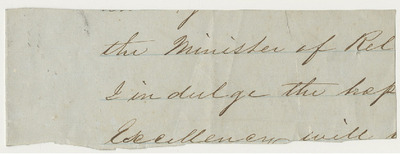 the Minister of Rel
I indulge the hop
Excellency will